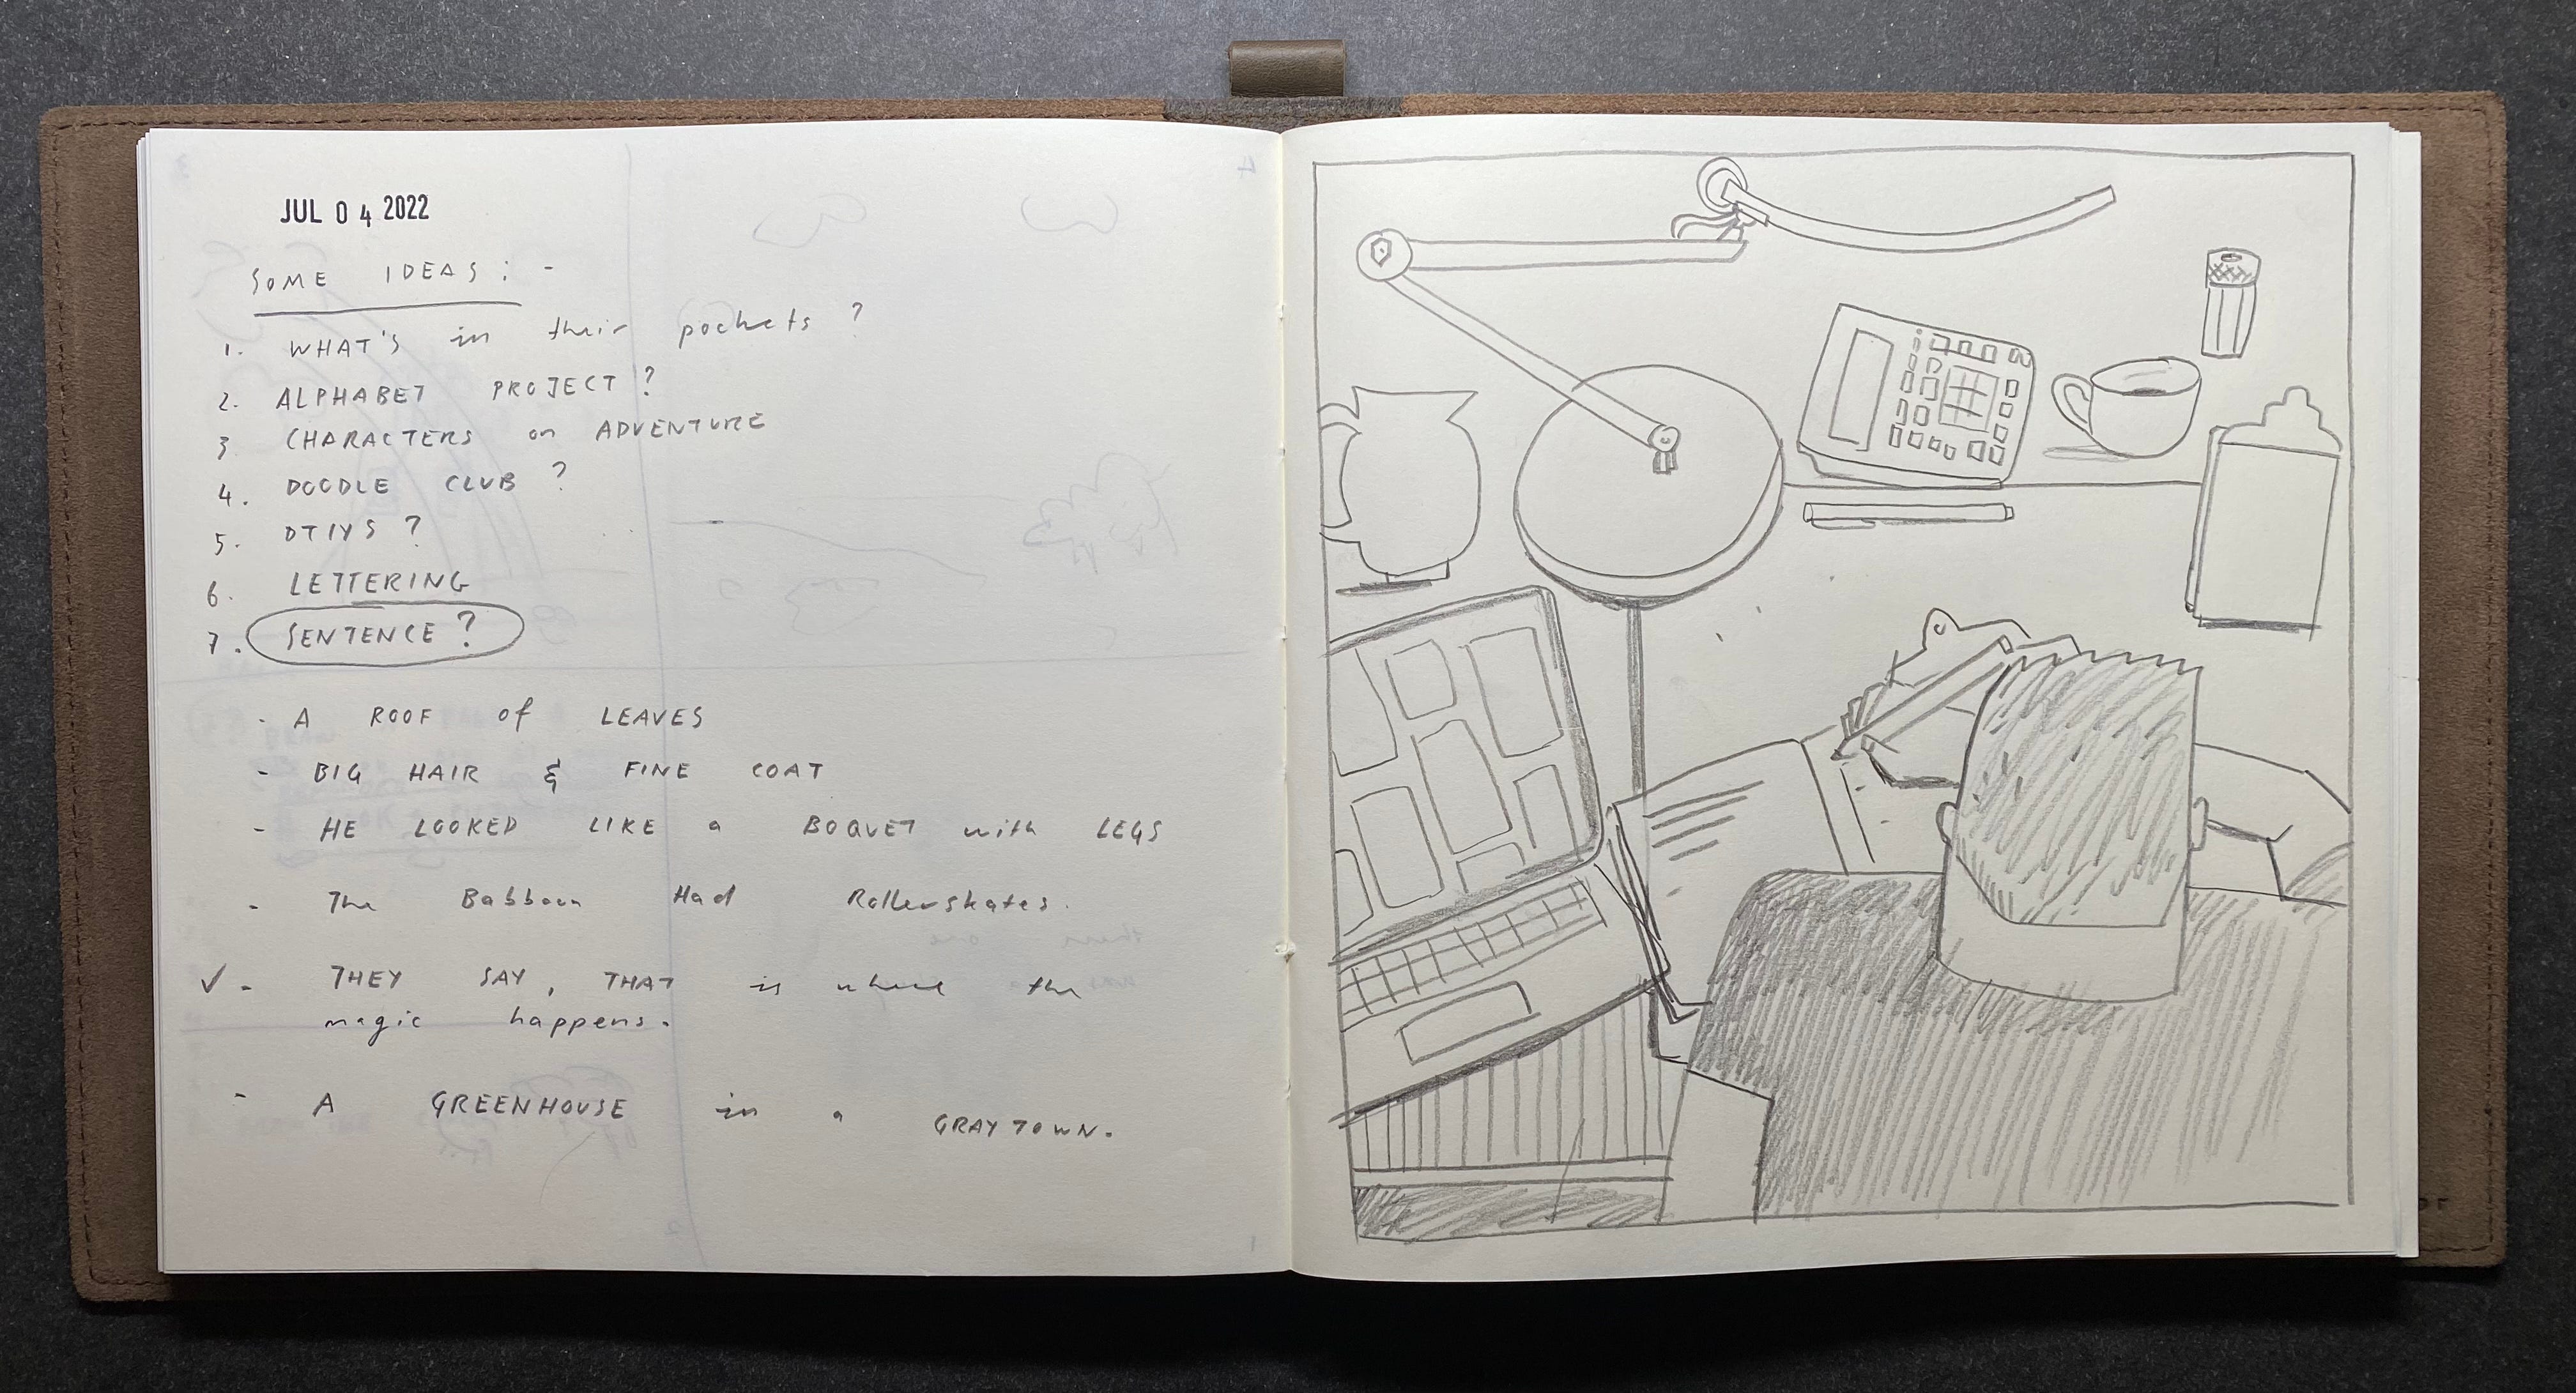 JUL 04 2022
SOME IDEAS : -
1. WHAT'S in their pockets ?
2. ALPHABET PROJECT ?
3 CHARACTERS on ADVENTURE
4. DOODLE CLUB ?
5. DTIYS ?
6. LETTERING
7. SENTENCE ?
- A ROOF of LEAVES
- BIG HAIR & FINE COAT
- HE LOOKED LIKE a BOQUET with LEGS
- The Babboon Had Rollerskates.
✓ - THEY SAY, THAT is where the
magic happens.
- A GREENHOUSE in a GRAYTOWN.